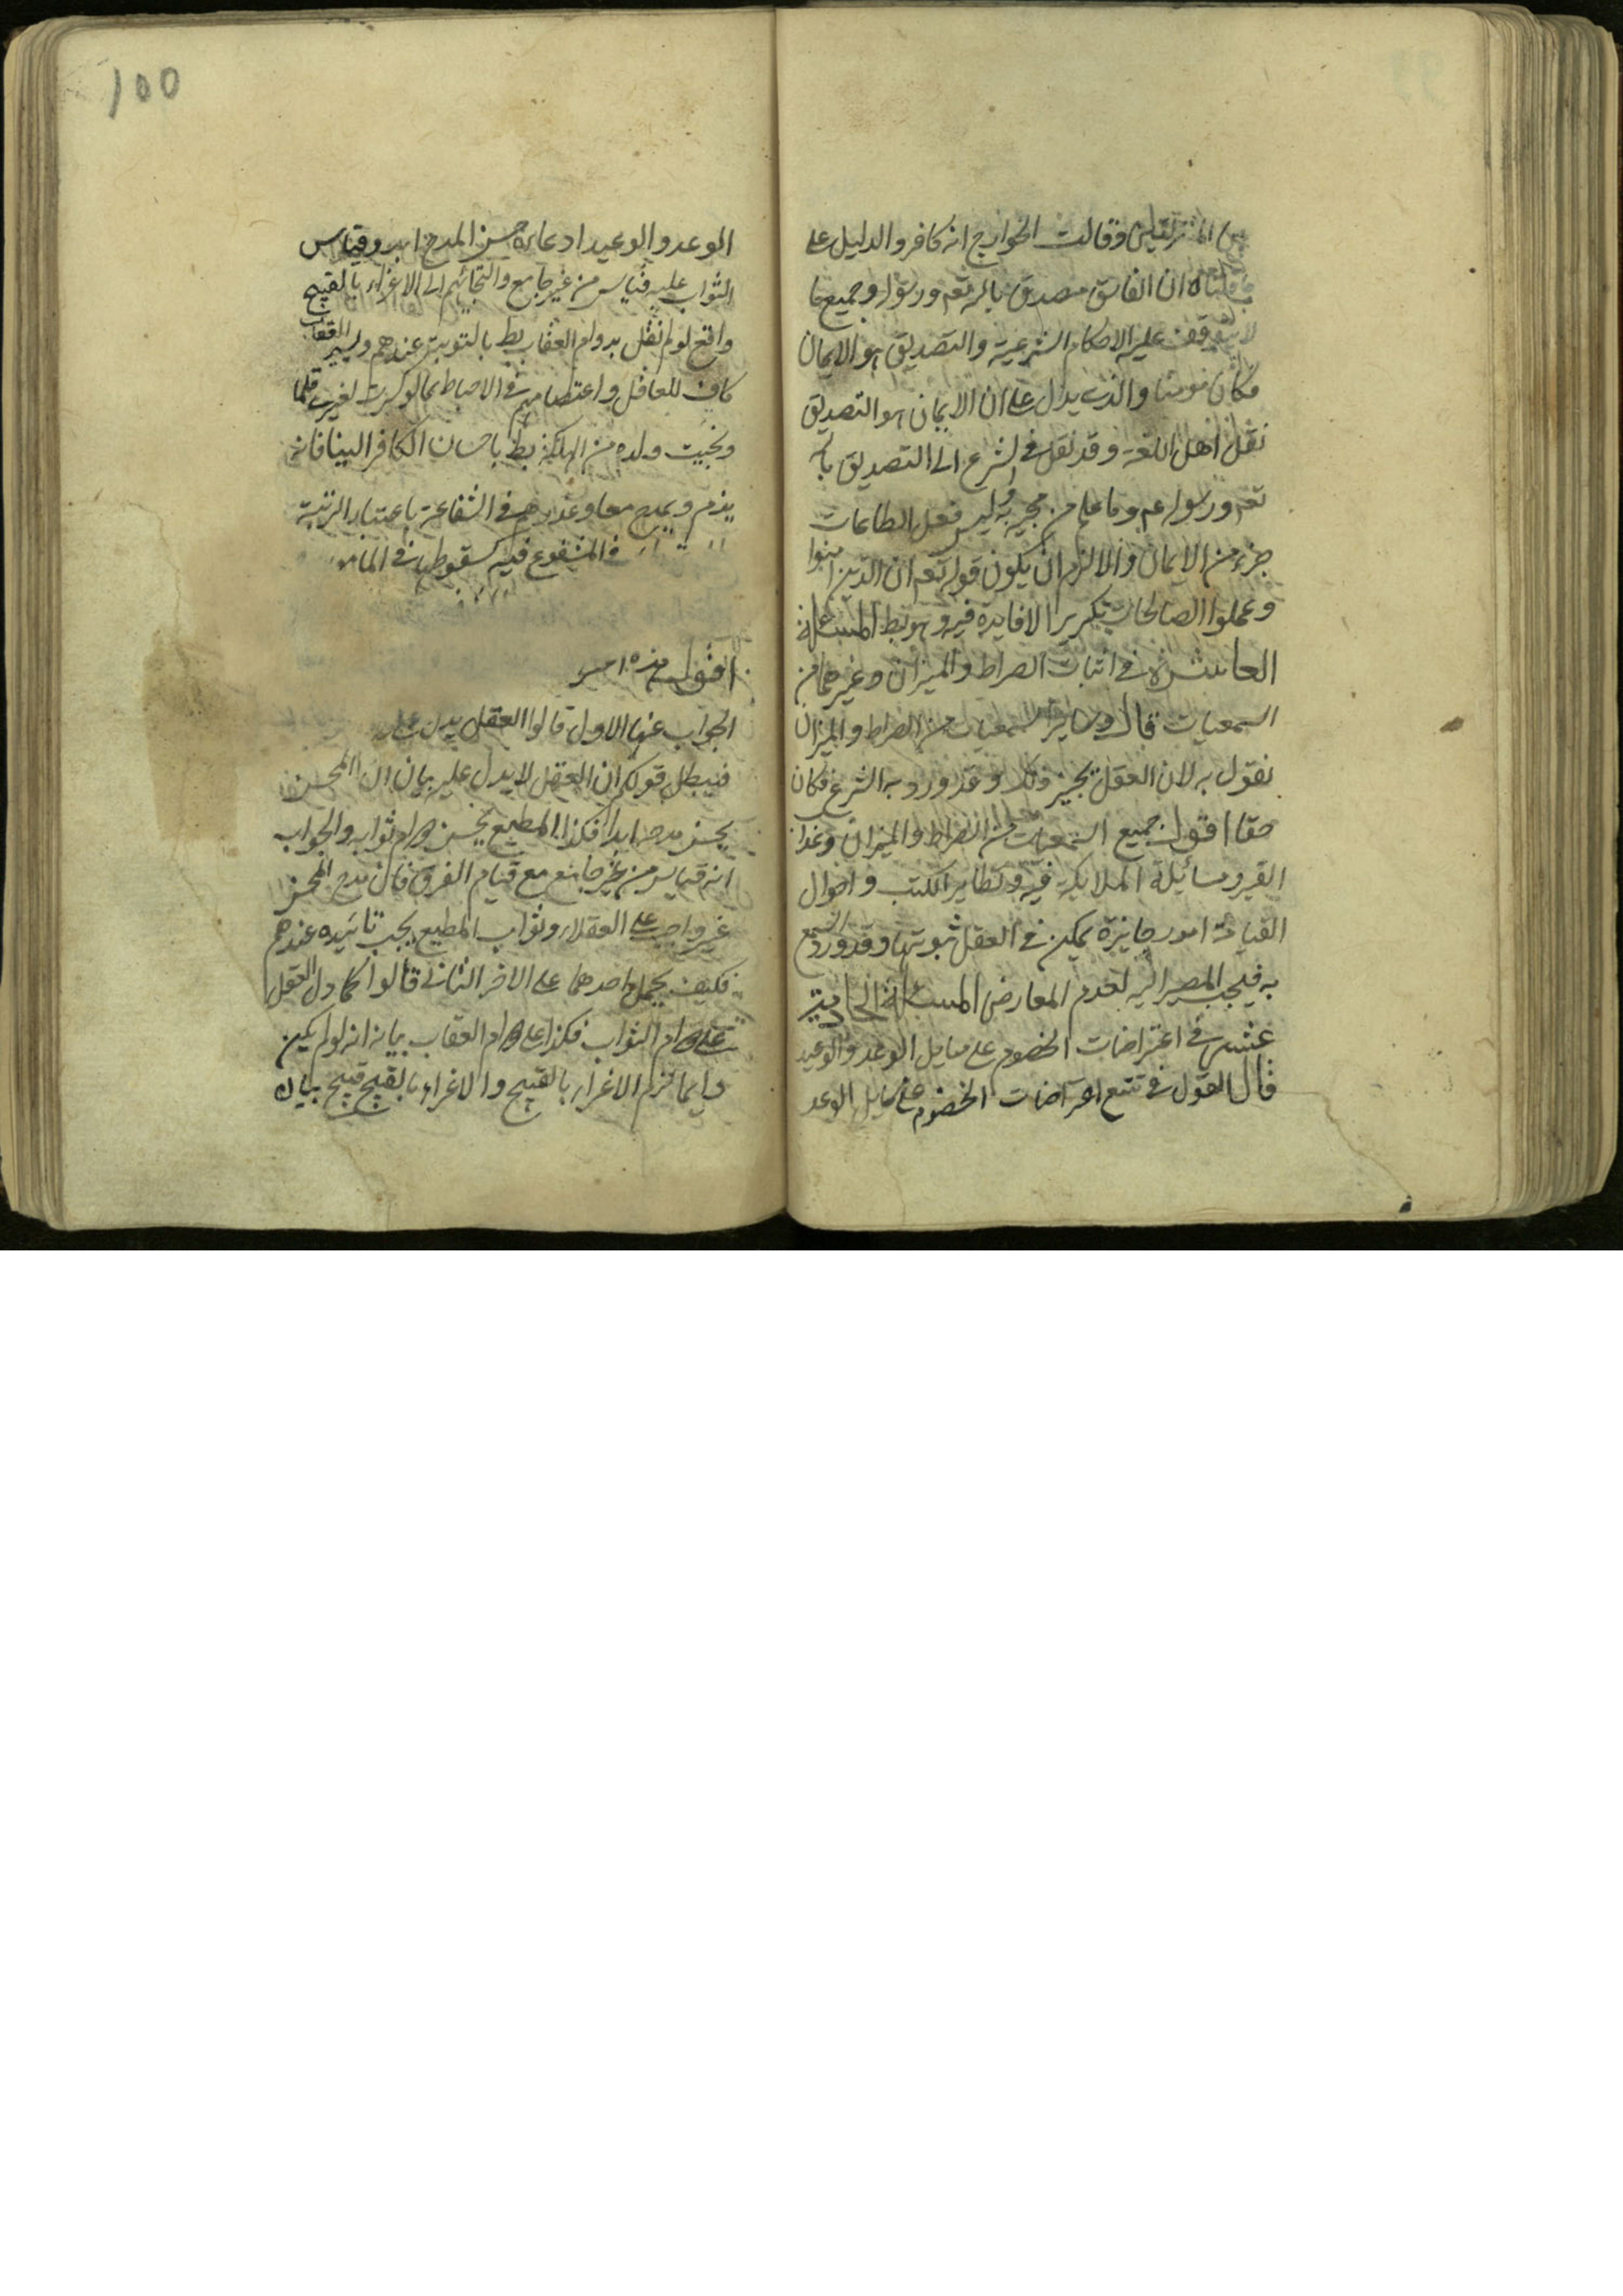 بين المنزلتين وقالت الخوارج انه كافر والدليل على
ما قلناه ان الفاسق مصدق بالله تعه ورسوله وجميع ما
لا يتوقف عليه الاحكام الشرعية والتصديق هو الايمان
فكان مومنا والذي يدل على ان الايمان هو التصديق
نقل اهل اللغة وقد نقل في الشرع الى التصديق بالله
تعه ورسوله عم وما علم من مجيئه به وليس فعل الطاعات
جزء من الايمان والا لزم ان يكون قوله تعه ان الذين امنوا
وعملوا الصالحات تكريرا لا فايدة فيه وهو بط المسئلة
العاشرة في اثبات الصراط والميزان وغيرهما من
السمعيات قال وساير السمعيات من الصراط والميزان
نقول به لان العقل يجيز ذلك وقد ورد به الشرع فكان
حقا اقول جميع السمعيات من الصراط والميزان وعذاب
القبر ومسائلة الملايكة فيه وتطاير الكتب واحوال
القيامة امور جايزة يمكن في العقل ثبوتها وقد ورد السمع
به فيجب المصير اليه لعدم المعارض المسئلة الحادية
عشر في اعتراضات الخصوم على مسايل الوعد والوعيد
قال القول في تتبع اعتراضات الخصوم على مسايل الوعد
100
الوعد والوعيد ادعاءهم حسن المدح ابدا وقياس
الثواب عليه قياس من غير جامع والتجائهم الى الاغراء بالقبيح
واقع لو لم نقل بدوام العقاب بط بالتوبة عندهم ويسير العقاب
كاف للعاقل واعتصامهم في الاحباط بما لو كسرت لغيرك قلما
ونجيت ولده من الهلكة بط باحسان الكافر الينا فانه
يذم ويمدح معا وعذرهم في الشفاعة باعتبار الرتبة
في المشفوع فيه سقوطها في المامور
اقول هذه
الجواب عنها الاول قالوا العقل يدل على
فيبطل قولكم ان العقل لا يدل عليه بيان ان المحسن
يحسن مدحه ابدا فكذا المطيع يحسن دوام ثوابه والجواب
انه قياس من غير جامع مع قيام الفرق فان مدح المحسن
غير واجب على العقلاء وثواب المطيع يجب تابيده عندهم
فكيف يحمل احدهما على الاخر الثاني قالوا كما دل العقل
على دوام الثواب فكذا على دوام العقاب بيانه انه لو لم يكن
دايما لزم الاغراء بالقبيح والاغراء بالقبيح قبيح بيان